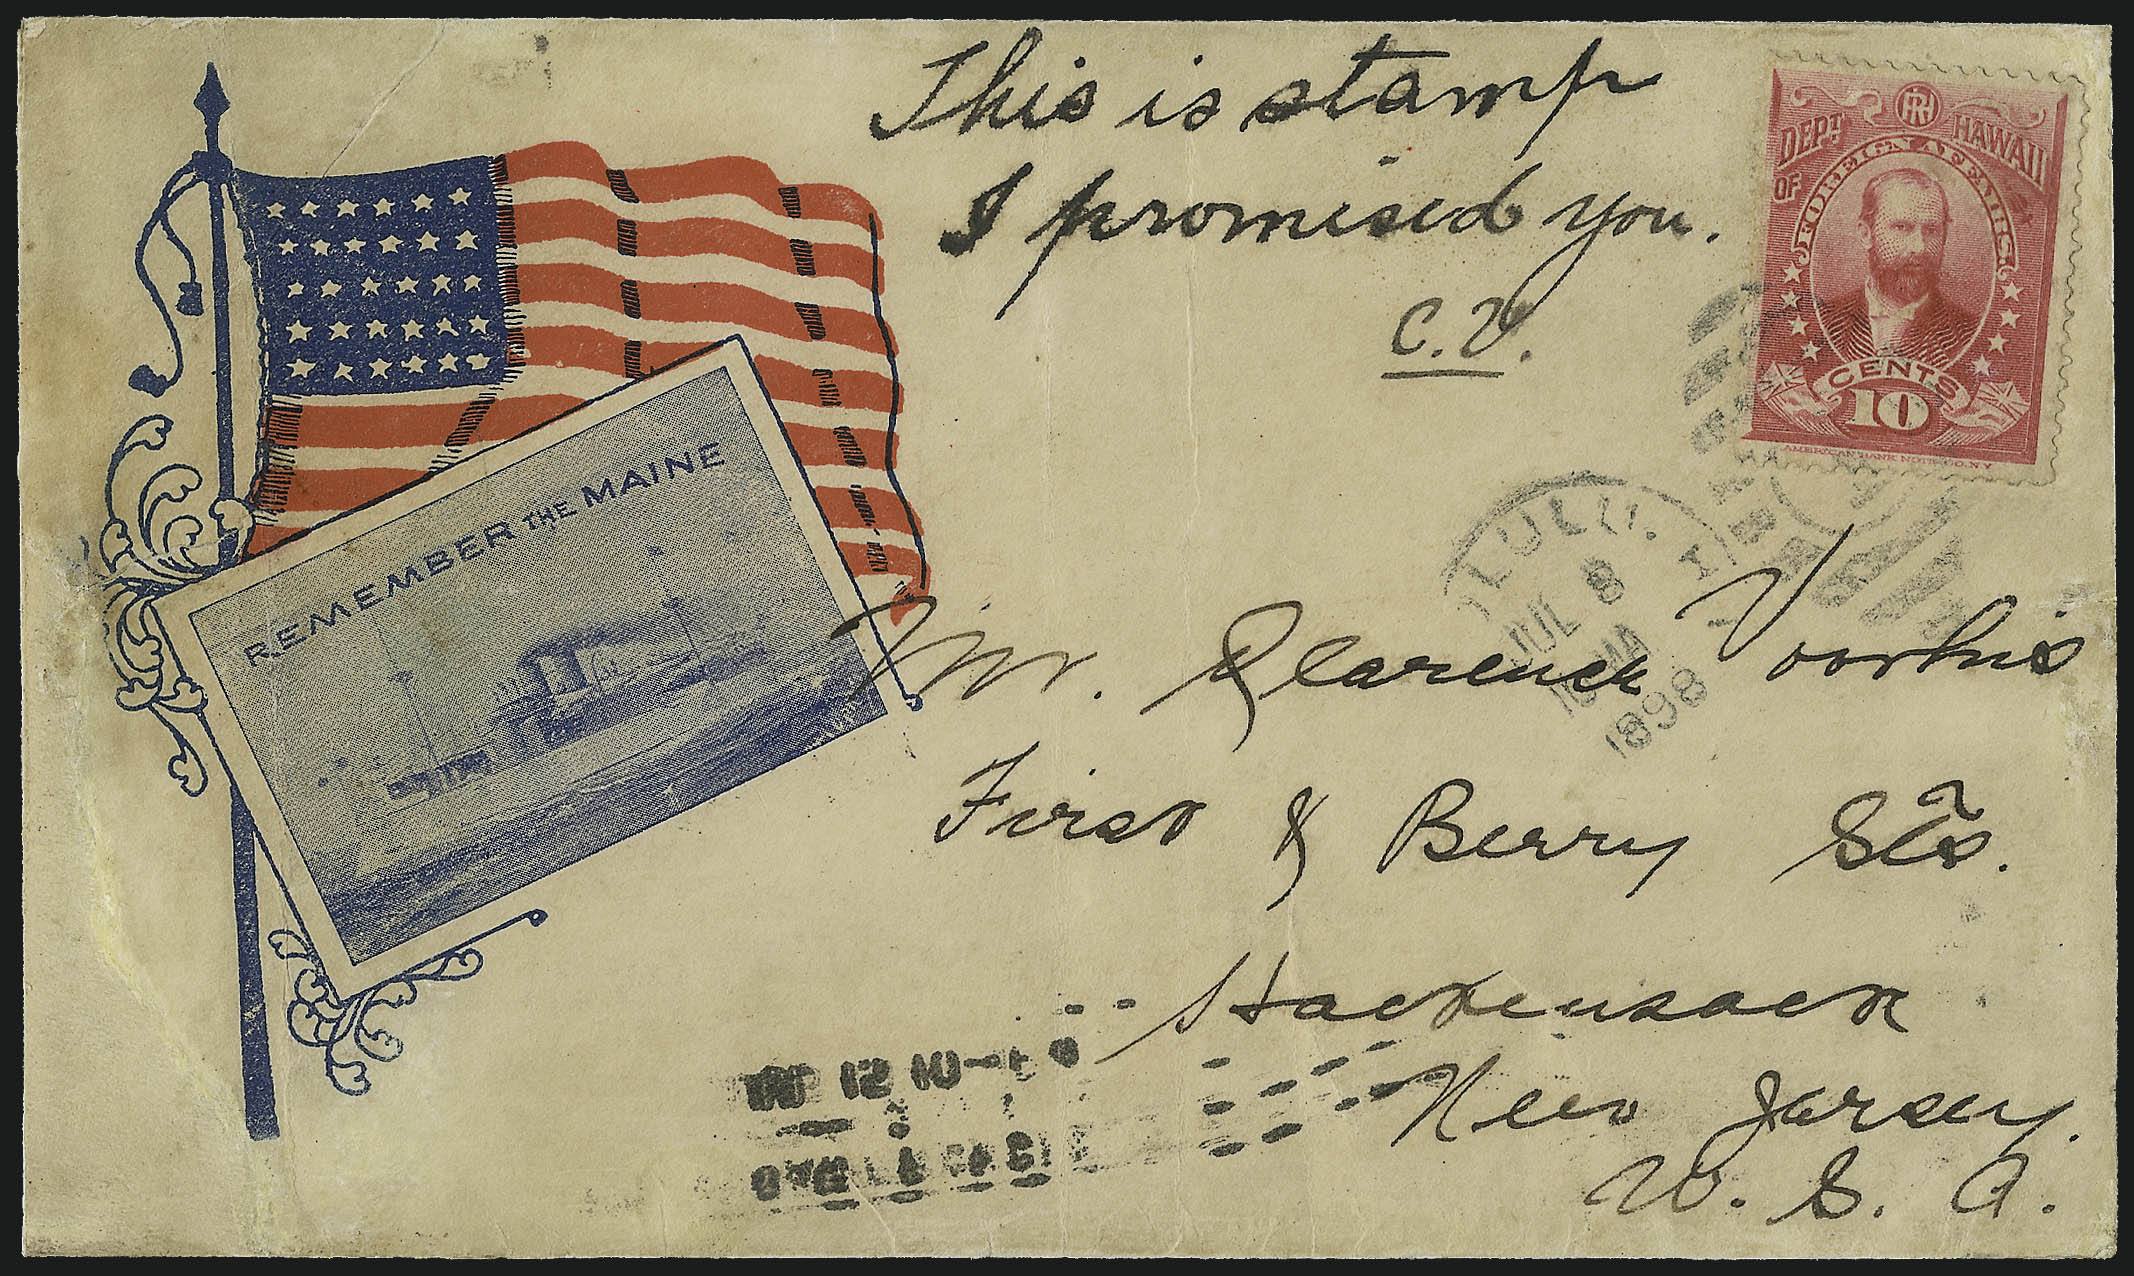 This is stamp
I promised you.
C.V.
RH
DEPT OF FOREIGN AFFAIRS HAWAII
CENTS
10
AMERICAN BANK NOTE CO. N.Y.
REMEMBER THE MAINE
JUL 8
1898
Mr. Clarence Voorhis
First & Berry Sts.
Hackensack
New Jersey.
U. S. A.
12 10